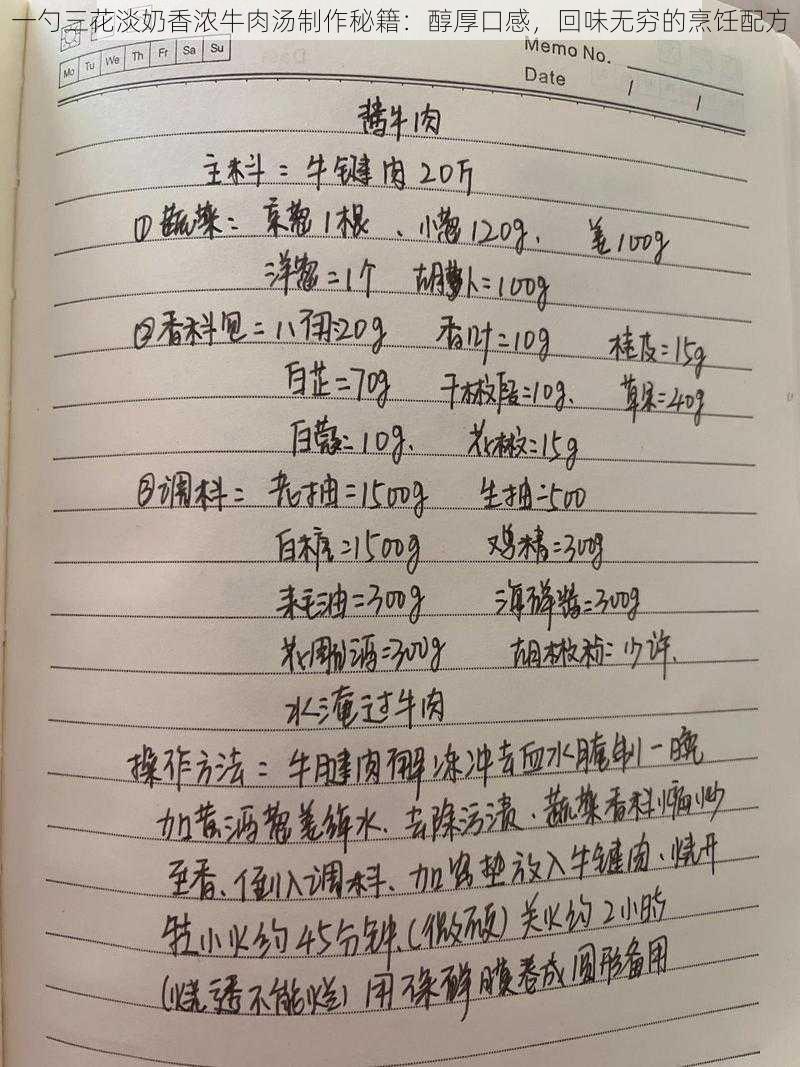 一勺三花淡奶香浓牛肉汤制作秘籍：醇厚口感，回味无穷的烹饪配方
Mo Tu We Th Fr Sa Su
Memo No.
Date / /
酱牛肉
主料 = 牛键肉 20斤
①蔬菜= 京葱1根、小葱120g、 姜100g
洋葱=1个 胡萝卜=100g
②香料包= 八角20g 香叶=10g 桂皮=15g
白芷=70g 干椒段=10g、 草果=40g
白蔻=10g、 花椒=15g
③调料= 老抽=1500g 生抽=500
白糖=1500g 鸡精=300g
耗油=300g 海鲜酱=300g
花周酒=300g 胡椒粉=少许、
水淹过牛肉
操作方法= 牛腱肉解冻冲去血水腌制一晚
加黄酒葱姜绰水、去除污渍、蔬菜香料煸炒
至香、倒入调料、加锅垫放入牛键肉、烧开
转小火约45分钟、(微硬)关火约2小时
(烧透不能烂)用保鲜膜卷成圆形备用